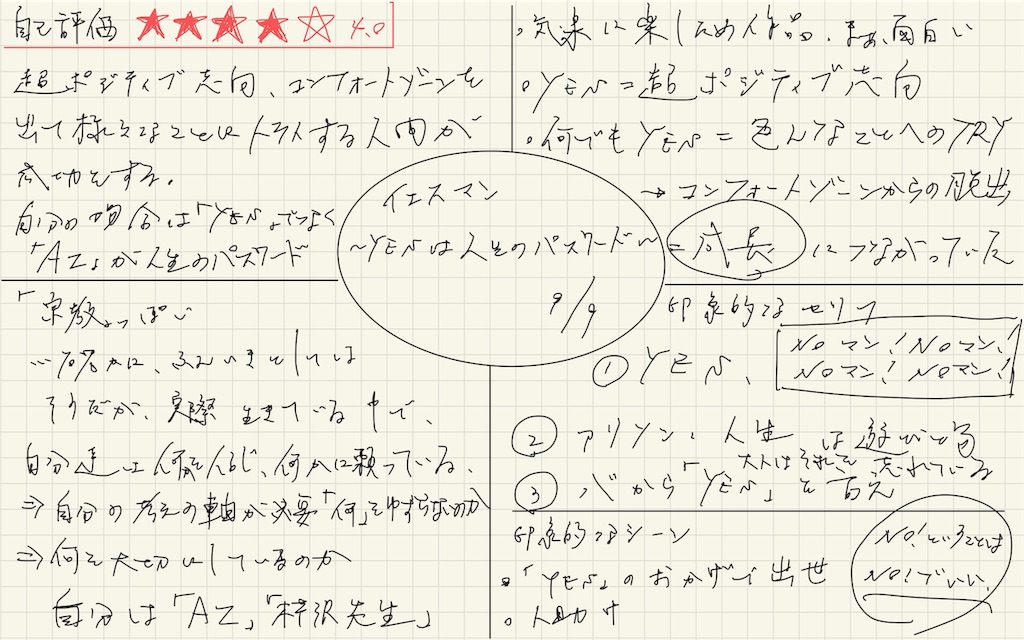 自己評価 ★★★★☆ 4.0
超ポジティブ志向、コンフォートゾーンを
出て様々なことにトライする人間が
成功をする。
自分の場合は「YES」でなく
「AZ」が人生のパスワード
イエスマン
〜YESは人生のパスワード〜
9/9
・気楽に楽しめた作品、まぁ、面白い
・YES=超ポジティブ志向
・何でもYES=色んなことへのTRY
→コンフォートゾーンからの脱出
=成長 につながっていた
「宗教」っぽい
…確かに、ふんいきとしては
そうだが、実際生きている中で、
自分達は何かを信じ、何かに頼っている、
⇒自分の考えの軸が必要「何」をゆずらないのか
⇒何を大切にしているのか
自分は「AZ」「樺沢先生」
印象的なセリフ
① YES、
NOマン!NOマン!
NOマン!NOマン!
② アリソン、人生は遊び場
大人はそれを忘れている
③ バから「YES」を言え
印象的なシーン
・「YES」のおかげで出世
・人助け
NO!ということは
NO!でいい、